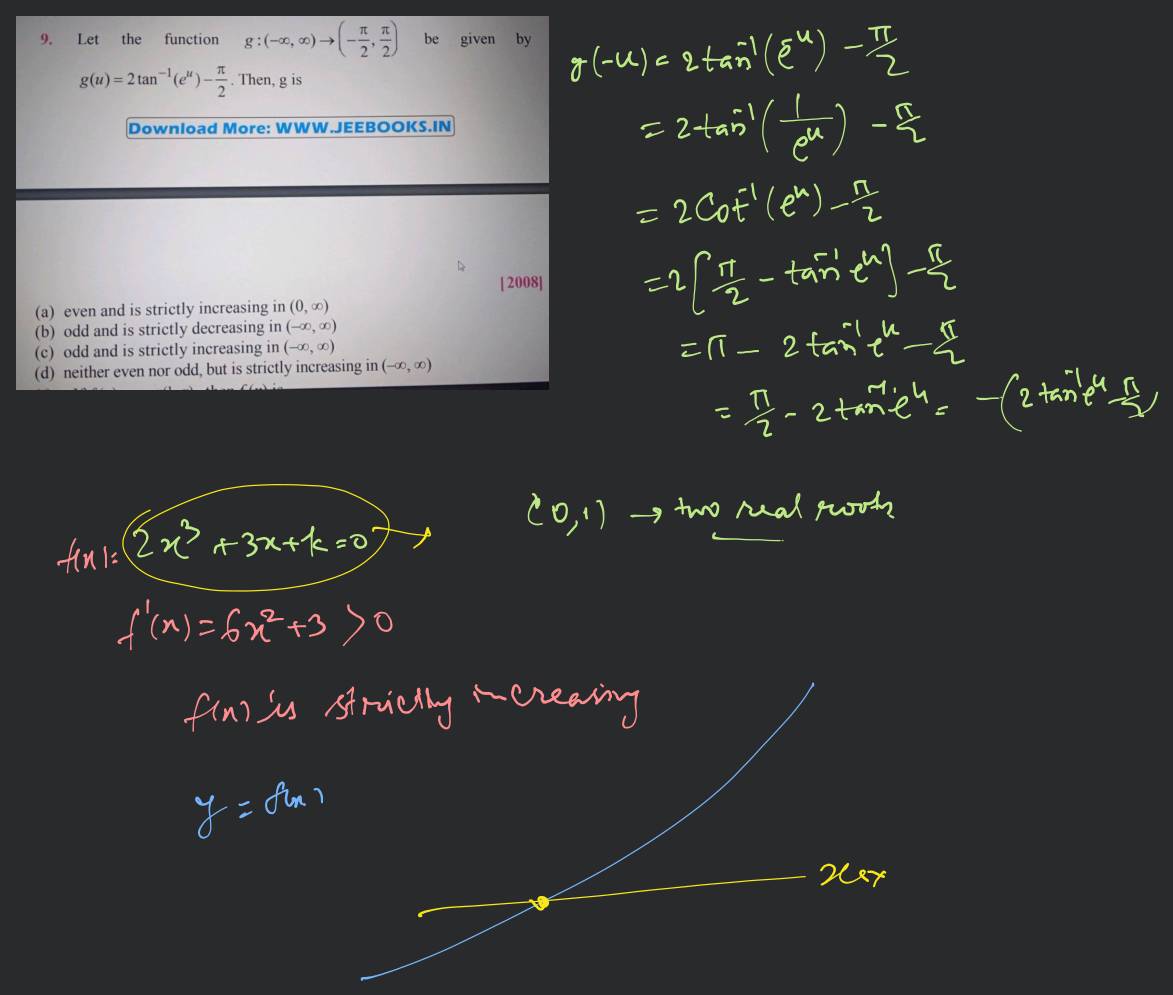 9. Let the function g : (−∞, ∞) → (−π/2, π/2) be given by
g(u) = 2 tan⁻¹(eᵘ) − π/2. Then, g is
Download More: WWW.JEEBOOKS.IN
[2008]
(a) even and is strictly increasing in (0, ∞)
(b) odd and is strictly decreasing in (−∞, ∞)
(c) odd and is strictly increasing in (−∞, ∞)
(d) neither even nor odd, but is strictly increasing in (−∞, ∞)
g(-u) = 2tan⁻¹(e⁻ᵘ) − π/2
= 2tan⁻¹(1/eᵘ) − π/2
= 2Cot⁻¹(eᵘ) − π/2
= 2[π/2 − tan⁻¹eᵘ] − π/2
= π − 2tan⁻¹eᵘ − π/2
= π/2 − 2tan⁻¹eᵘ = −(2tan⁻¹eᵘ − π/2)
f(x): 2x³ + 3x + k = 0
(0,1) → two real roots
f'(x) = 6x² + 3 > 0
f(x) is strictly increasing
y = f(x)